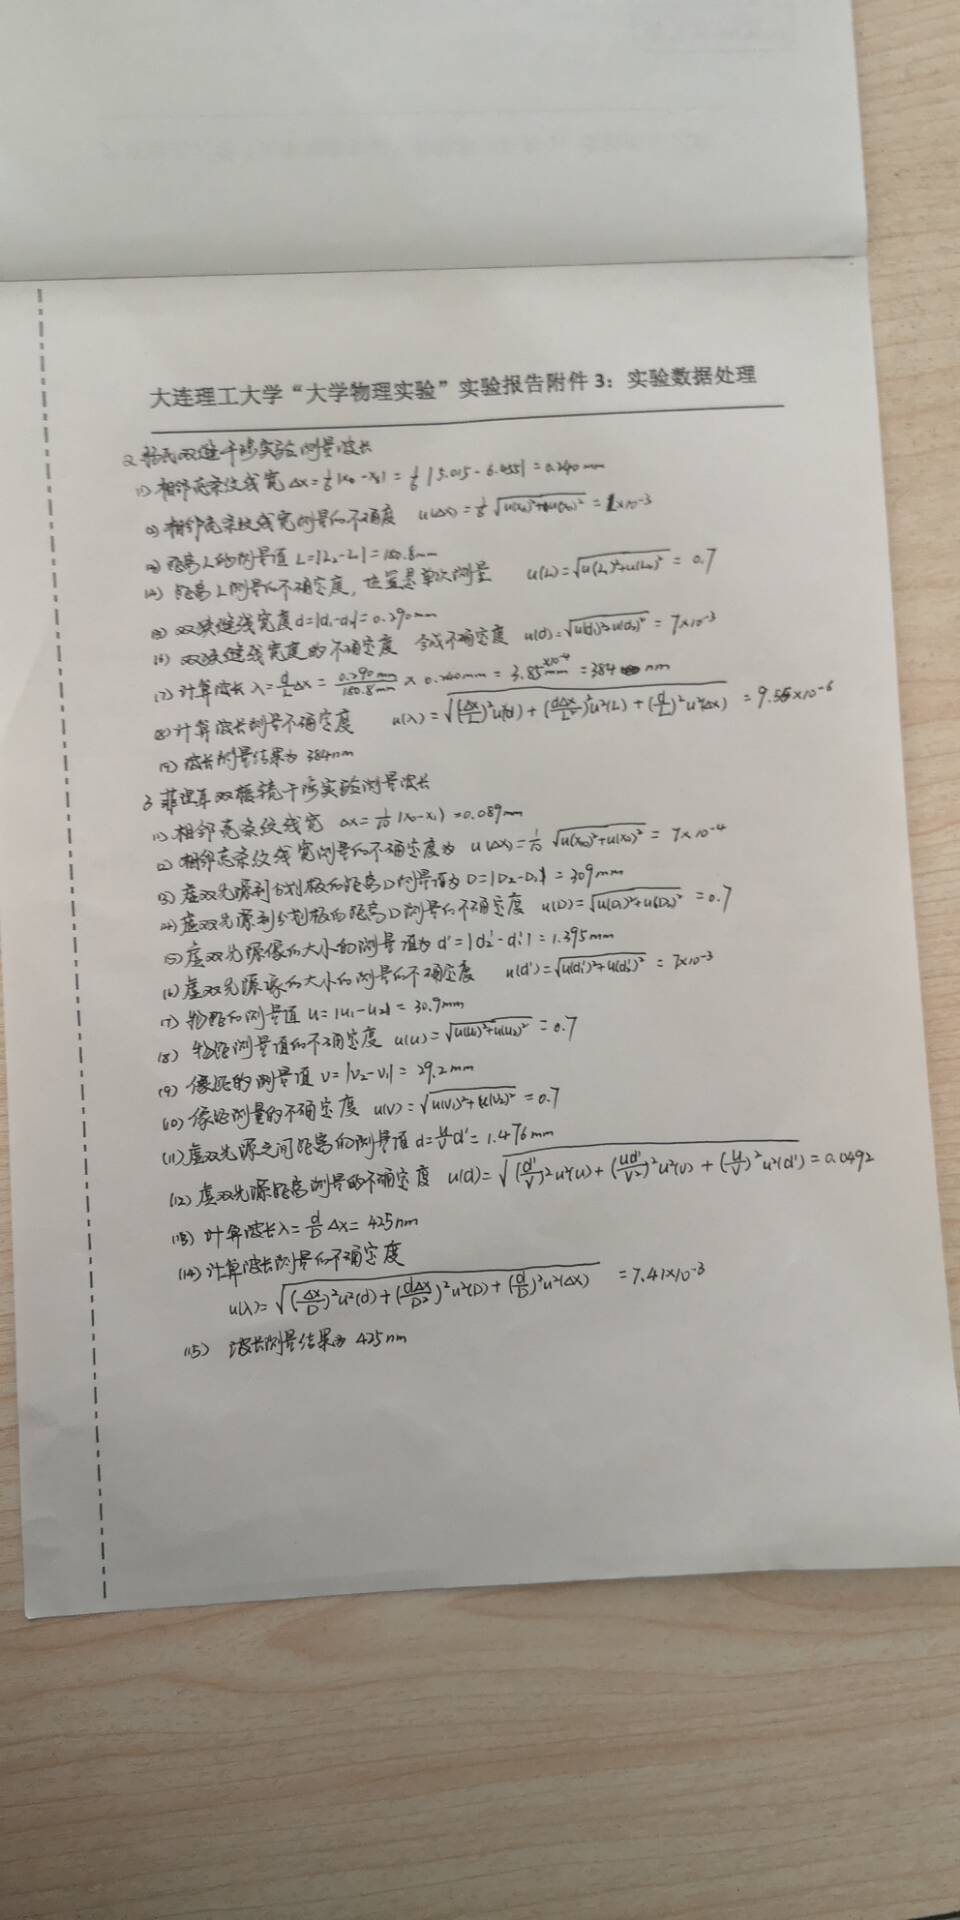 大连理工大学“大学物理实验”实验报告附件3：实验数据处理
2 杨氏双缝干涉实验测量波长
(1) 相邻亮条纹线宽 Δx = 1/6 |x₆ - x₀| = 1/6 |5.015 - 6.455| = 0.240 mm
(2) 相邻亮条纹线宽测量的不确定度 u(Δx) = 1/6 √(u(x₆)²+u(x₀)²) = 1×10⁻³
(3) 距离L的测量值 L=|L₂-L₁| = 180.8mm
(4) 距离L测量的不确定度, 位置是单次测量 u(L)=√(u(L₁)²+u(L₂)²) = 0.7
(5) 双狭缝线宽度 d=|d₁-d₂|=0.290mm
(6) 双狭缝线宽度的不确定度 合成不确定度 u(d)=√(u(d₁)²+u(d₂)²) = 7×10⁻³
(7) 计算波长 λ = d/L Δx = 0.290mm/180.8mm × 0.240mm = 3.85×10⁻⁴mm = 384 nm
(8) 计算波长测量不确定度 u(λ) = √((Δx/L)²u²(d) + (dΔx/L²)²u²(L) + (d/L)²u²(Δx)) = 9.55×10⁻⁶
(9) 波长测量结果为 384nm
3 菲涅耳双棱镜干涉实验测量波长
(1) 相邻亮条纹线宽 Δx = 1/10 (x₀-x₁) = 0.089mm
(2) 相邻亮条纹线宽测量的不确定度为 u(Δx)= 1/10 √(u(x₁₀)²+u(x₀)²) = 7×10⁻⁴
(3) 虚双光源到分划板的距离D测量值为 D=|D₂-D₁| = 309mm
(4) 虚双光源到分划板的距离D测量的不确定度 u(D)=√(u(D₁)²+u(D₂)²) = 0.7
(5) 虚双光源像的大小的测量值为 d'=|d₂'-d₁'| = 1.395mm
(6) 虚双光源像的大小的测量的不确定度 u(d')=√(u(d₁')²+u(d₂')²) = 7×10⁻³
(7) 物距的测量值 u=|u₁-u₂| = 30.9mm
(8) 物距测量值的不确定度 u(u)=√(u(u₁)²+u(u₂)²) = 0.7
(9) 像距的测量值 v=|v₂-v₁| = 29.2mm
(10) 像距测量的不确定度 u(v)=√(u(v₁)²+u(v₂)²) = 0.7
(11) 虚双光源之间距离的测量值 d=u/v d' = 1.476mm
(12) 虚双光源距离测量的不确定度 u(d)=√((d'/v)²u²(u)+(ud'/v²)²u²(v)+(u/v)²u²(d')) = 0.0492
(13) 计算波长 λ = d/D Δx = 425nm
(14) 计算波长测量的不确定度
u(λ)=√((Δx/D)²u²(d)+(dΔx/D²)²u²(D)+(d/D)²u²(Δx)) = 7.41×10⁻³
(15) 波长测量结果为 425nm